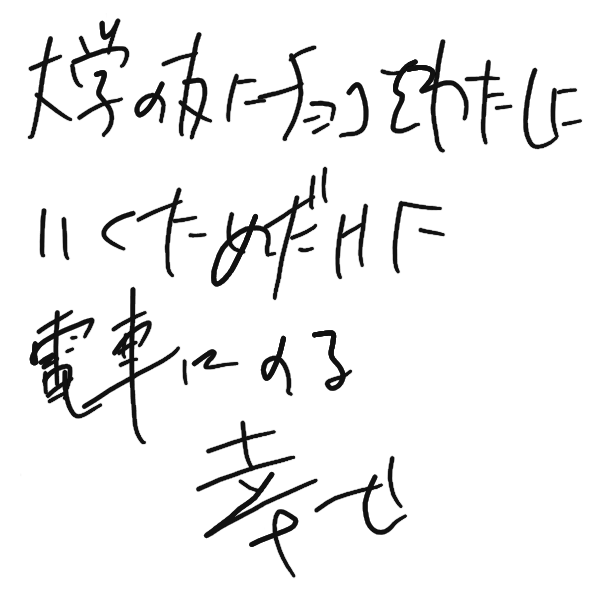 大学の友にチョコをわたしに
いくためだけに
電車にのる
幸せ